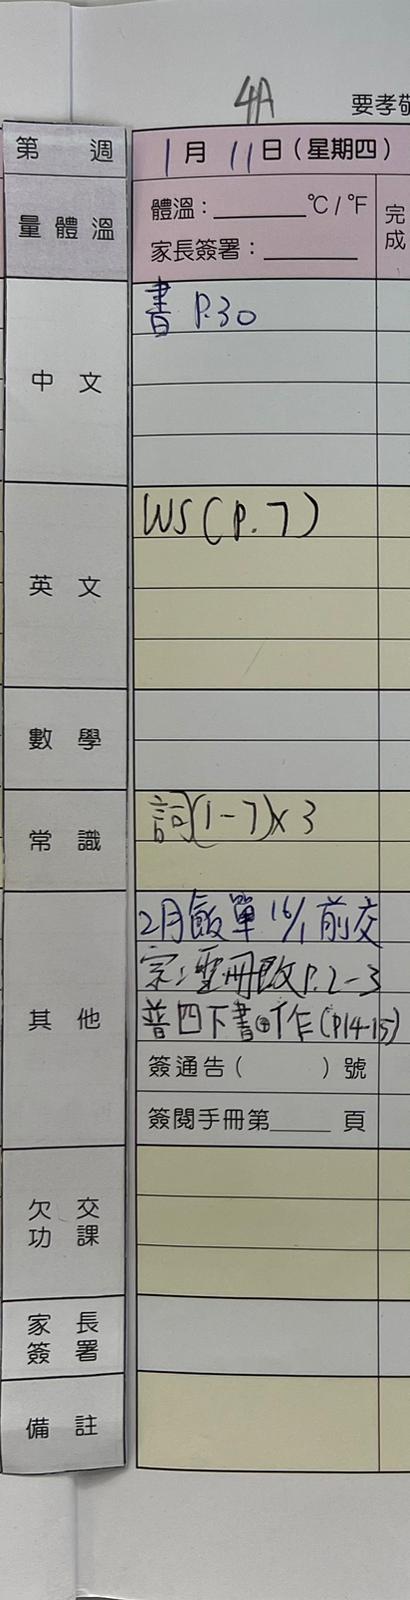 4A
要孝敬
第 週
1月11日(星期四)
量體溫
體溫：______℃/℉
家長簽署：______
完成
中文
書 P.30
英文
WS(P.7)
數學
常識
詞(1-7)x3
其他
2月飯單 16/1 前交
宗：聖冊改P.2-3
普四下書作(P14-15)
簽通告( )號
簽閱手冊第____頁
欠交功課
家長簽署
備註